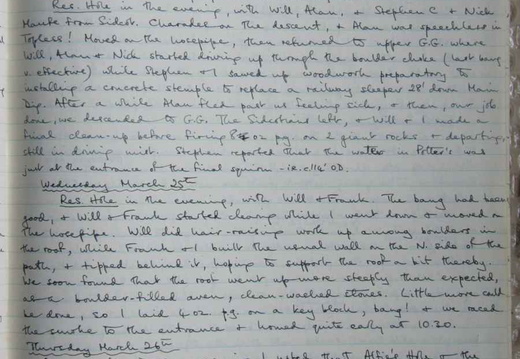 Res. Hole in the evening, with Will, Alan, & Stephen C & Nick
from Sidcot. Charades on the descent, & Alan was speechless in
Topless! Moved on the hosepipe, then returned to upper G.G. where
Will, Alan & Nick started driving up through the boulder choke (last bang
v. effective) while Stephen & I sawed up woodwork preparatory to
installing a concrete stemple to replace a railway sleeper 28' down Main
Dig. After a while Alan fled past us feeling sick, & then, our job
done, we descended to G.G. The Sidcotians left, & Will & I made a
final clean-up before firing 8 oz p.g. on 2 giant rocks & departing,
still in driving mist. Stephen reported that the water in Potter's was
just at the entrance of the final squeeze - i.e. c114' O.D.
Wednesday March 25th
Res. Hole in the evening, with Will & Frank. The bang had been
good, & Will & Frank started clearing while I went down & moved on
the hosepipe. Will did hair-raising work up among boulders in
the roof, while Frank & I built the usual wall on the N. side of the
path, & tipped behind it, hoping to support the roof a bit thereby.
We soon found that the roof went up more steeply than expected,
as a boulder-filled aven, clean-washed stones. Little more could
be done, so I laid 4 oz p.g. on a key block, bang! & we raced
the smoke to the entrance & homed quite early at 10.20.
Thursday March 26th
Hole & the